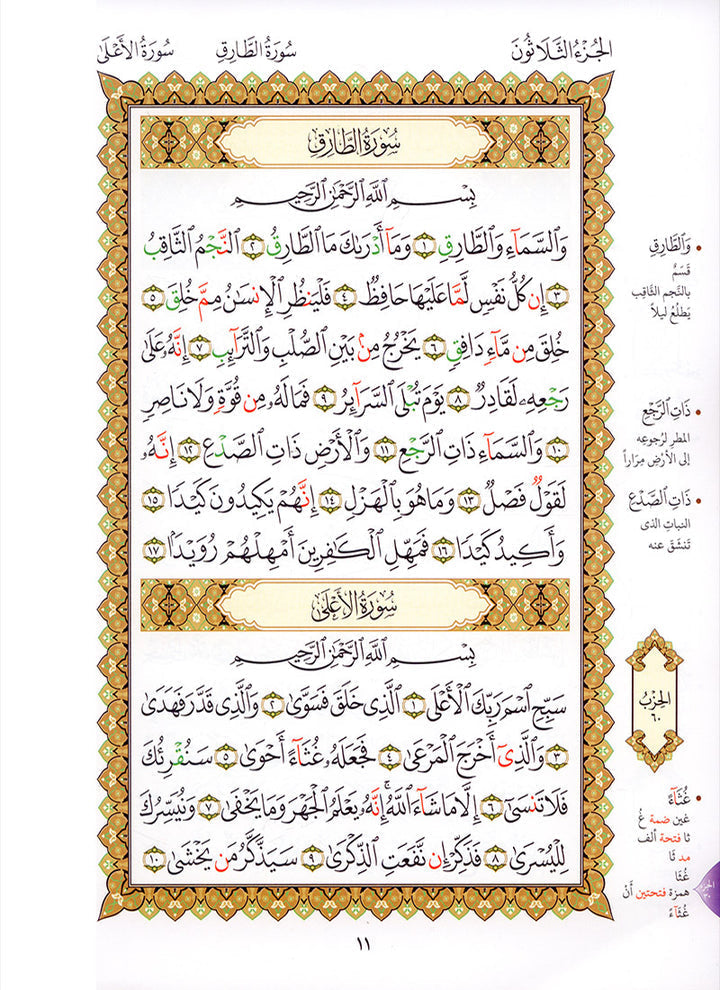 الجُزْءُ الثَّلَاثُونَ سُورَةُ الطَّارِقِ سُورَةُ الأَعْلَىٰ
سُورَةُ الطَّارِقِ
بِسْمِ اللَّهِ الرَّحْمَٰنِ الرَّحِيمِ
وَالسَّمَآءِ وَالطَّارِقِ ١ وَمَآ أَدْرَىٰكَ مَا الطَّارِقُ ٢ النَّجْمُ الثَّاقِبُ
٣ إِن كُلُّ نَفْسٍ لَّمَّا عَلَيْهَا حَافِظٌ ٤ فَلْيَنظُرِ الْإِنسَٰنُ مِمَّ خُلِقَ ٥
خُلِقَ مِن مَّآءٍ دَافِقٍ ٦ يَخْرُجُ مِنۢ بَيْنِ الصُّلْبِ وَالتَّرَآئِبِ ٧ إِنَّهُۥ عَلَىٰ
رَجْعِهِۦ لَقَادِرٌ ٨ يَوْمَ تُبْلَى السَّرَآئِرُ ٩ فَمَا لَهُۥ مِن قُوَّةٍ وَلَا نَاصِرٍ
١٠ وَالسَّمَآءِ ذَاتِ الرَّجْعِ ١١ وَالْأَرْضِ ذَاتِ الصَّدْعِ ١٢ إِنَّهُۥ
لَقَوْلٌ فَصْلٌ ١٣ وَمَا هُوَ بِالْهَزْلِ ١٤ إِنَّهُمْ يَكِيدُونَ كَيْدًا ١٥
وَأَكِيدُ كَيْدًا ١٦ فَمَهِّلِ الْكَٰفِرِينَ أَمْهِلْهُمْ رُوَيْدًۢا ١٧
سُورَةُ الأَعْلَىٰ
بِسْمِ اللَّهِ الرَّحْمَٰنِ الرَّحِيمِ
سَبِّحِ اسْمَ رَبِّكَ الْأَعْلَى ١ الَّذِى خَلَقَ فَسَوَّىٰ ٢ وَالَّذِى قَدَّرَ فَهَدَىٰ
٣ وَالَّذِىٓ أَخْرَجَ الْمَرْعَىٰ ٤ فَجَعَلَهُۥ غُثَآءً أَحْوَىٰ ٥ سَنُقْرِئُكَ
فَلَا تَنسَىٰٓ ٦ إِلَّا مَا شَآءَ اللَّهُ ۚ إِنَّهُۥ يَعْلَمُ الْجَهْرَ وَمَا يَخْفَىٰ ٧ وَنُيَسِّرُكَ
لِلْيُسْرَىٰ ٨ فَذَكِّرْ إِن نَّفَعَتِ الذِّكْرَىٰ ٩ سَيَذَّكَّرُ مَن يَخْشَىٰ ١٠
وَالطَّارِقِ
قَسَمٌ
بالنَّجم الثَّاقِب
يَطْلُعُ ليلاً
ذَاتِ الرَّجْعِ
المطر لرُجوعِه
إلى الأَرْضِ مِرَاراً
ذَاتِ الصَّدْعِ
النباتِ الذى
تَنشَقُّ عنه
الحِزْبُ
٦٠
غُثَآءً
غين ضمة غُ
ثا فتحة ألف
مد ثَا
غُثَا
همزة فتحتين أَنْ
غُثَآءً
الجزء
٣٠
١١